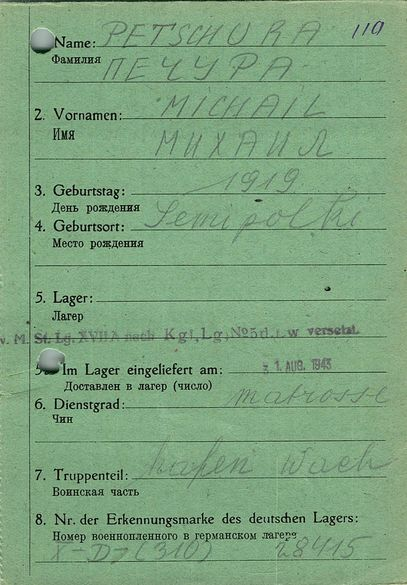 110
Name: PETSCHURA
Фамилия ПЕЧУРА
2. Vornamen: MICHAIL
Имя МИХАИЛ
3. Geburtstag: 1919
День рождения
4. Geburtsort: Semipolki
Место рождения
5. Lager:
Лагер
v. M. St. Lg. XVII A nach Kgf. Lg. No 5 d. Lw versetzt
Im Lager eingeliefert am: 31. AUG. 1943
Доставлен в лагер (число)
6. Dienstgrad: matrosse
Чин
7. Truppenteil: hafen Wach
Воинская часть
8. Nr. der Erkennungsmarke des deutschen Lagers:
Номер военнопленного в германском лагере
X-D (310) 28415